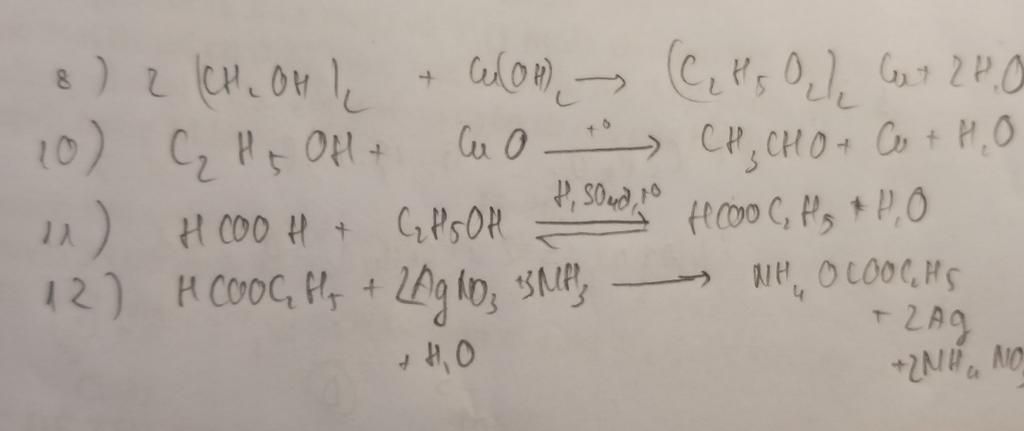 8) 2 (CH2OH)2 + Cu(OH)2 → (C2H5O2)2 Cu + 2H2O
10) C2H5OH + CuO t° → CH3CHO + Cu + H2O
11) HCOOH + C2H5OH H2SO4đ, t° ⇌ HCOOC2H5 + H2O
12) HCOOC2H5 + 2AgNO3 + 3NH3 → NH4OCOOC2H5
+ H2O + 2Ag
+ 2NH4NO3